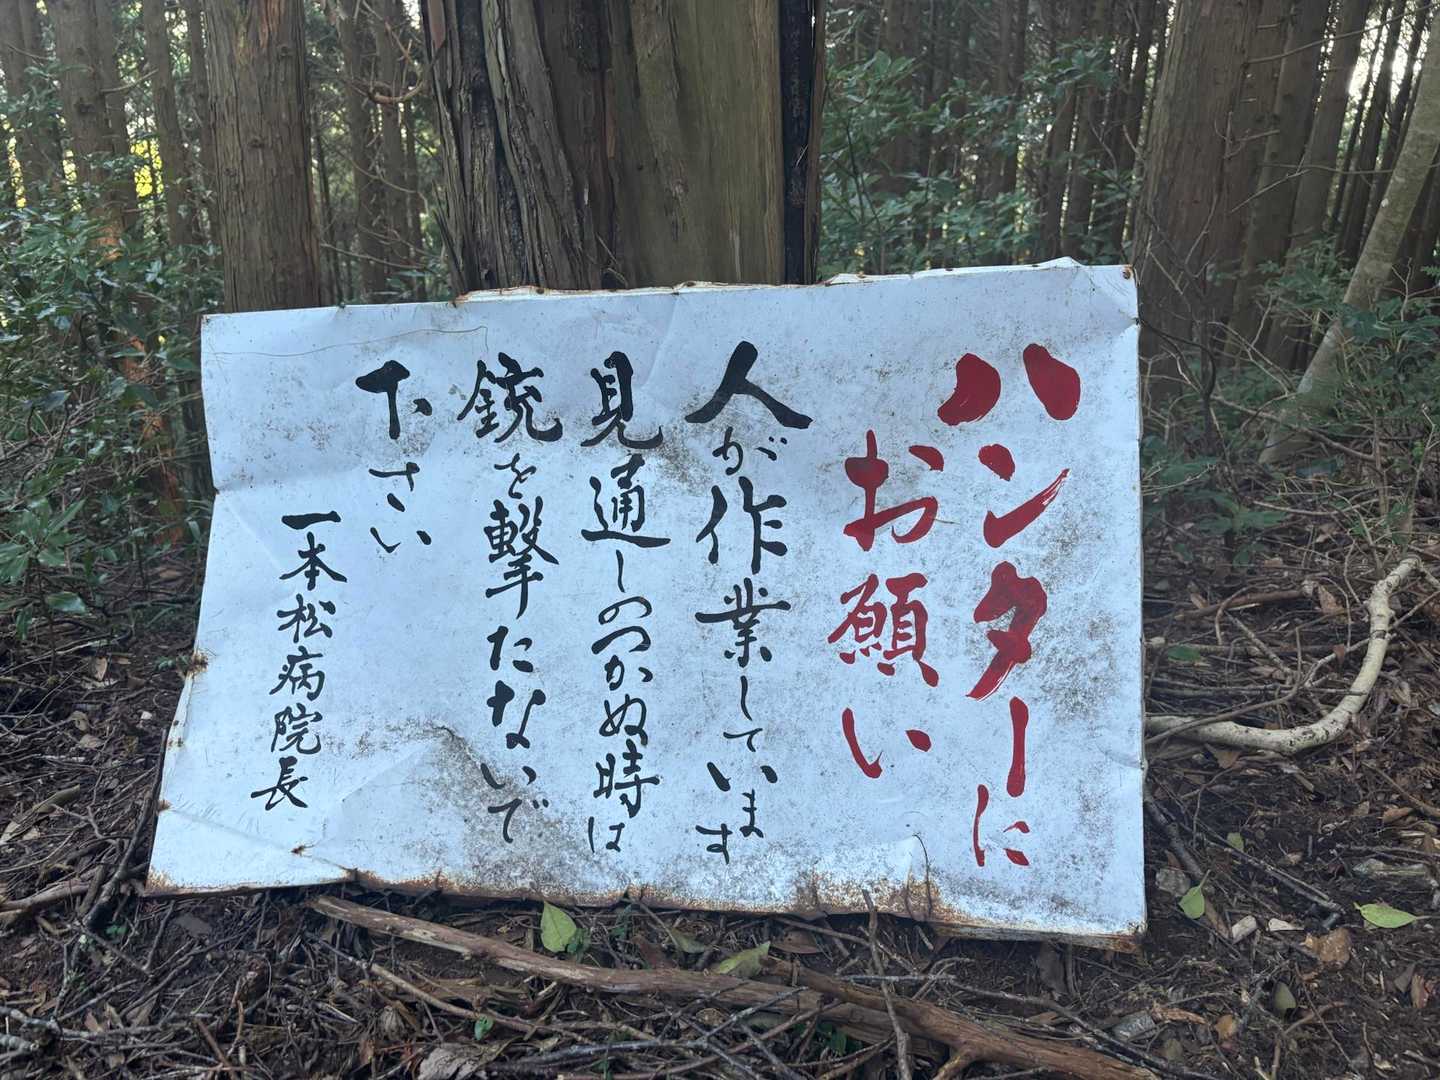 ハンターに
お願い
人が作業しています
見通しのつかぬ時は
銃を撃たないで
下さい
一本松病院長